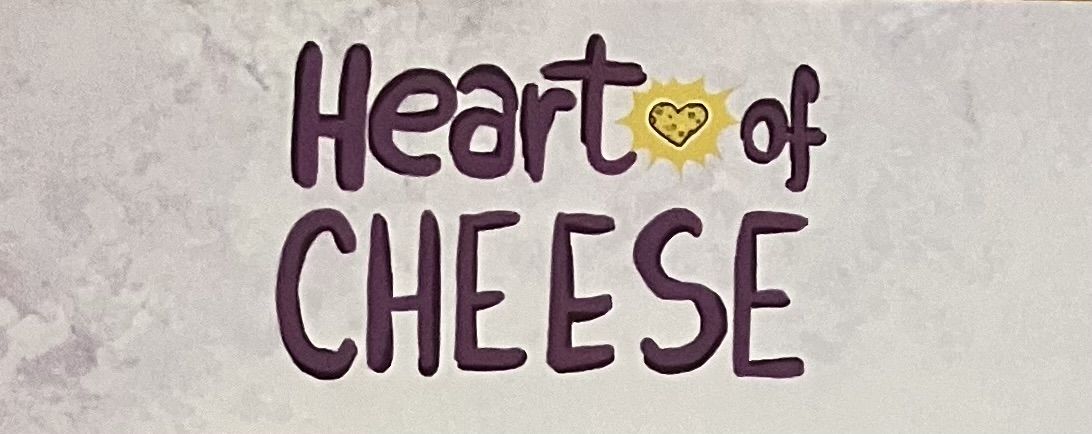 Heart of
CHEESE